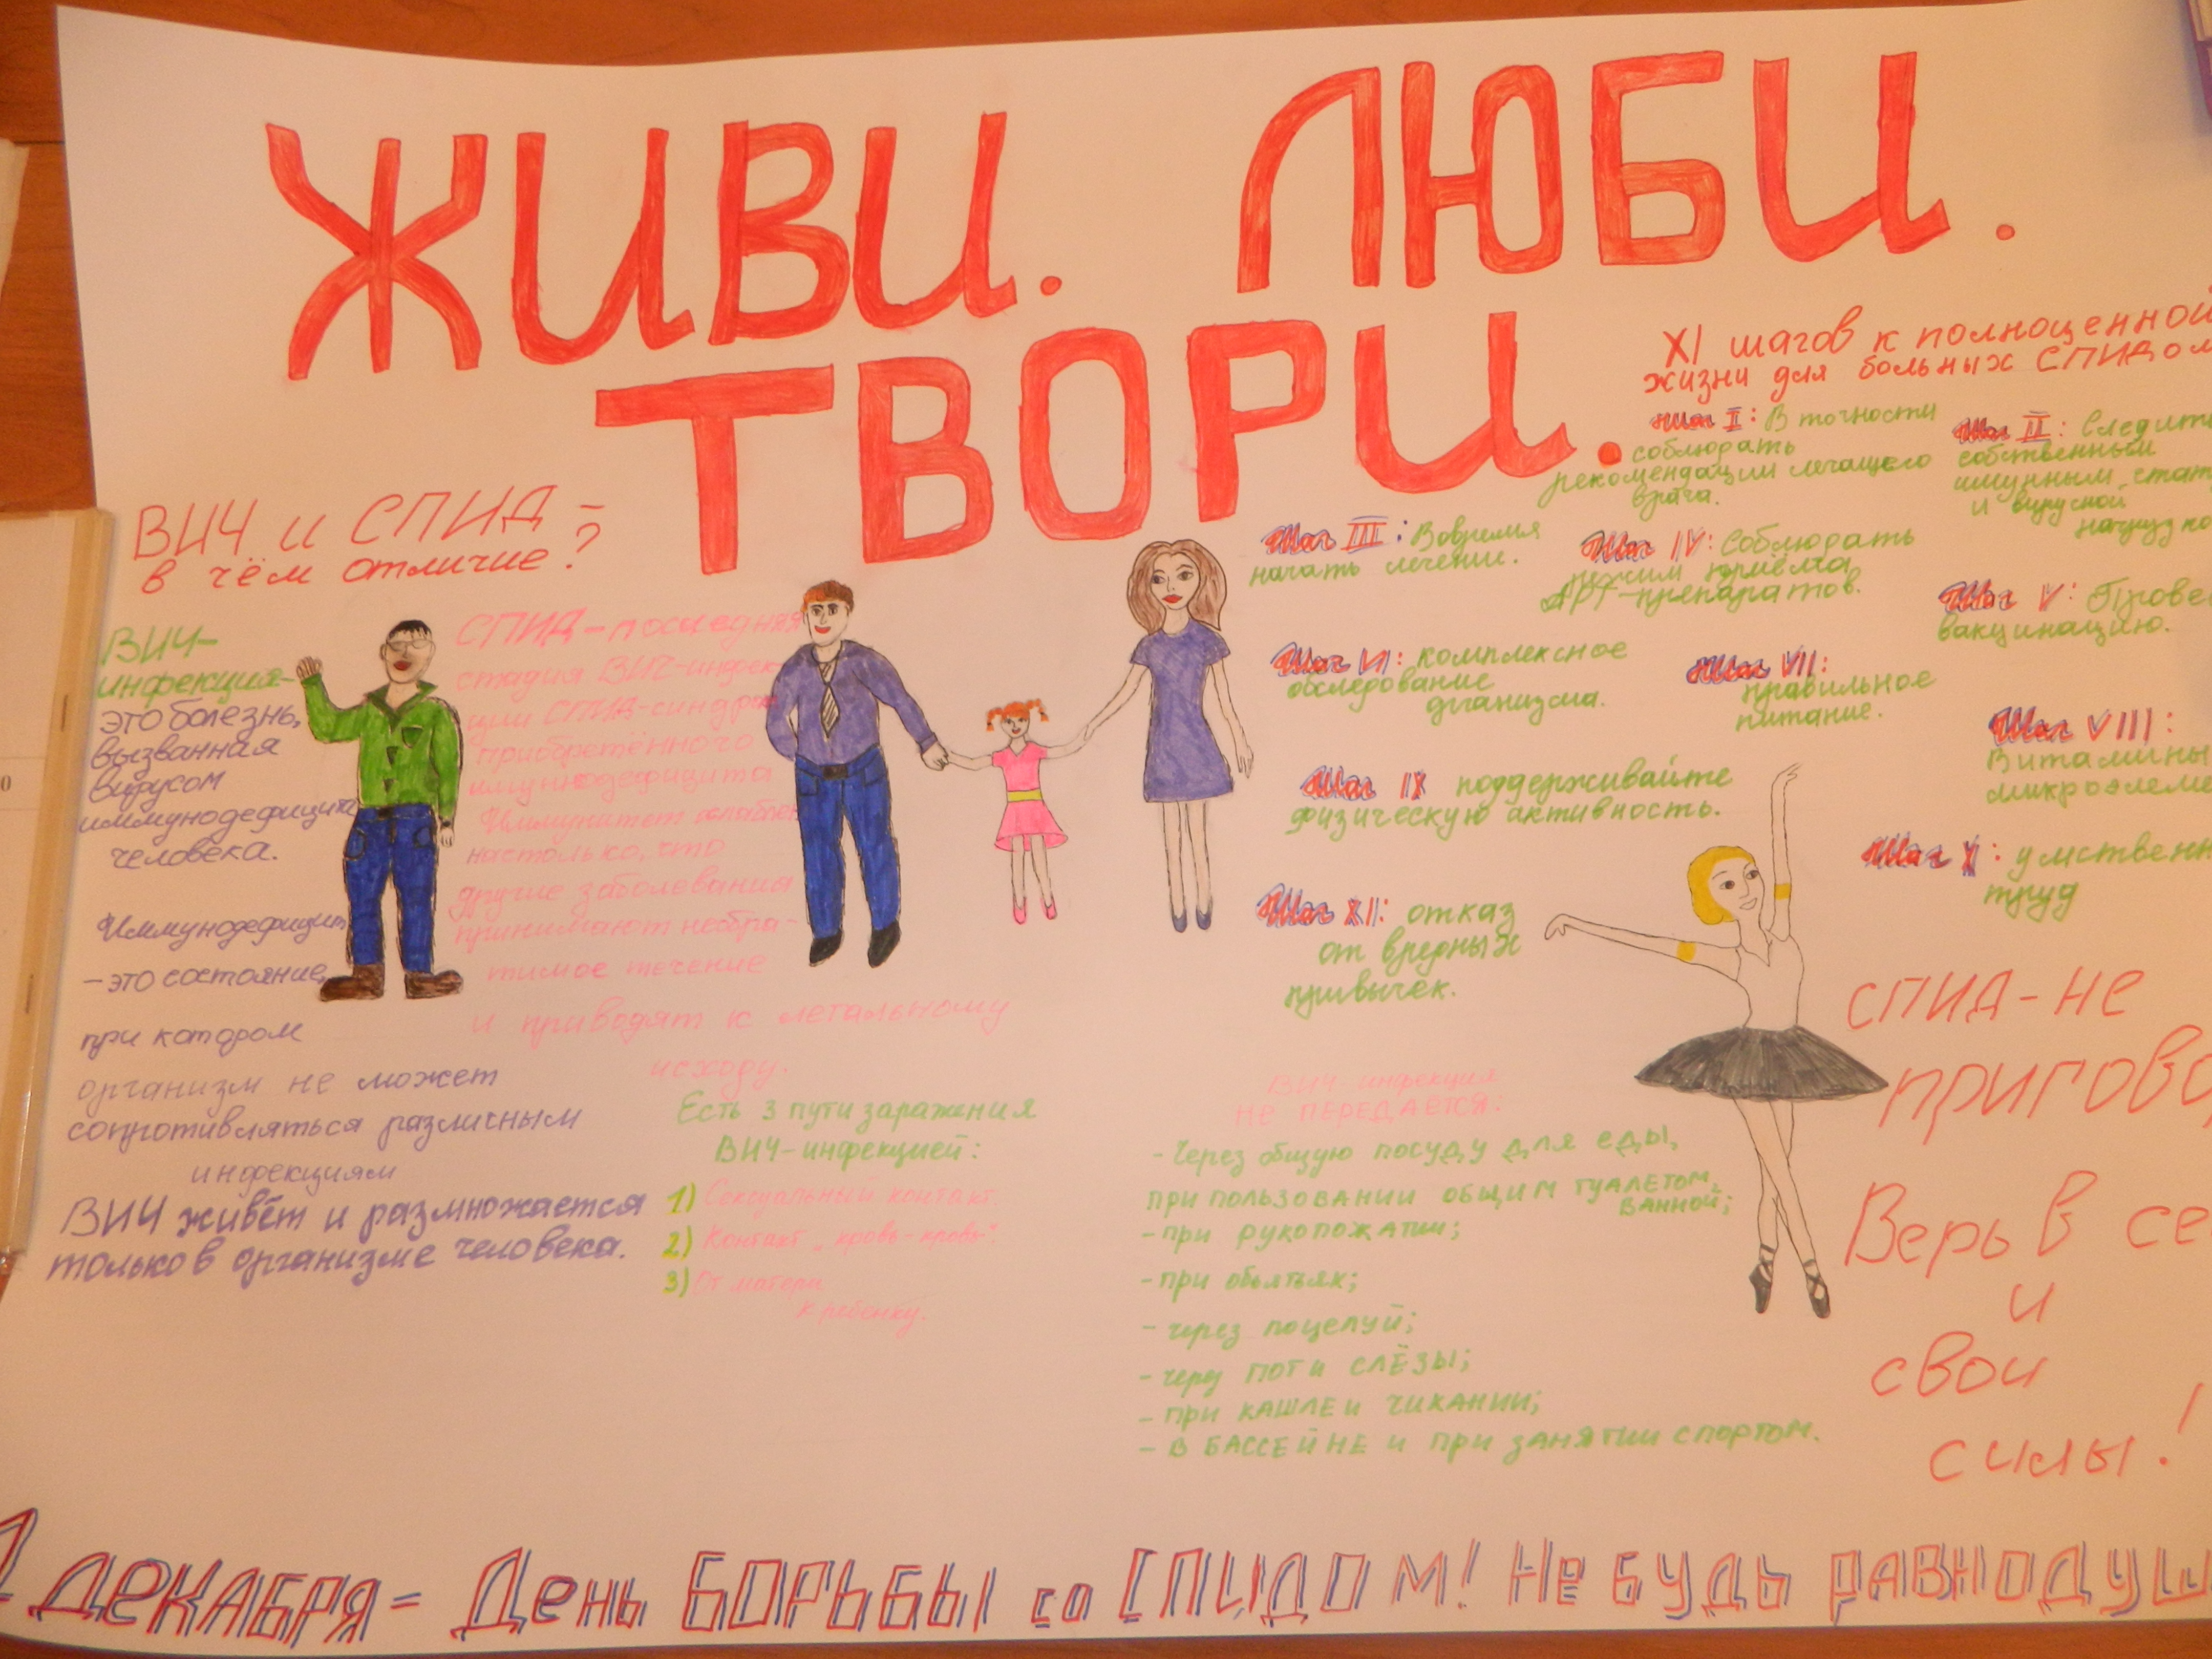 ЖИВИ. ЛЮБИ.
ТВОРИ.
ВИЧ и СПИД –
в чём отличие?
ВИЧ-
инфекция-
это болезнь,
вызванная
вирусом
иммунодефицита
человека.
Иммунодефицит
– это состояние,
при котором
организм не может
сопротивляться различным
инфекциям
ВИЧ живёт и размножается
только в организме человека.
СПИД – последняя
стадия ВИЧ-инфек-
ции СПИД-синдром
приобретённого
иммунодефицита
Иммунитет ослаблен
настолько, что
другие заболевания
принимают необра-
тимое течение
и приводят к летальному
исходу.
Есть 3 пути заражения
ВИЧ-инфекцией:
1) Сексуальный контакт.
2) Контакт „кровь-кровь".
3) От матери
к ребенку.
XI шагов к полноценной
жизни для больных СПИДом
Шаг I: В точности
соблюдать
рекомендации лечащего
врача.
Шаг II: Следить
собственным
имунным стат
и вирусной
нагрузко
Шаг III: Вовремя
начать лечение.
Шаг IV: Соблюдать
режим приёма
АРТ-препаратов.
Шаг V: Прове
вакцинацию.
Шаг VI: комплексное
обследование
организма.
Шаг VII:
правильное
питание.
Шаг VIII:
Витамины
микроэлеме
Шаг IX поддерживайте
физическую активность.
Шаг X: умственн
труд
Шаг XI: отказ
от вредных
привычек.
ВИЧ-инфекция
НЕ ПЕРЕДАЕТСЯ:
- Через общую посуду для еды,
при пользовании общим туалетом,
ванной;
- при рукопожатии;
- при обьятьях;
- через поцелуй;
- через пот и слёзы;
- при кашле и чихании;
- в бассейне и при занятии спортом.
СПИД – не
пригово
Верь в се
и
свои
силы!
1 ДЕКАБРЯ = День БОРЬБЫ со СПИДОМ! Не будь РАВНОДУШ